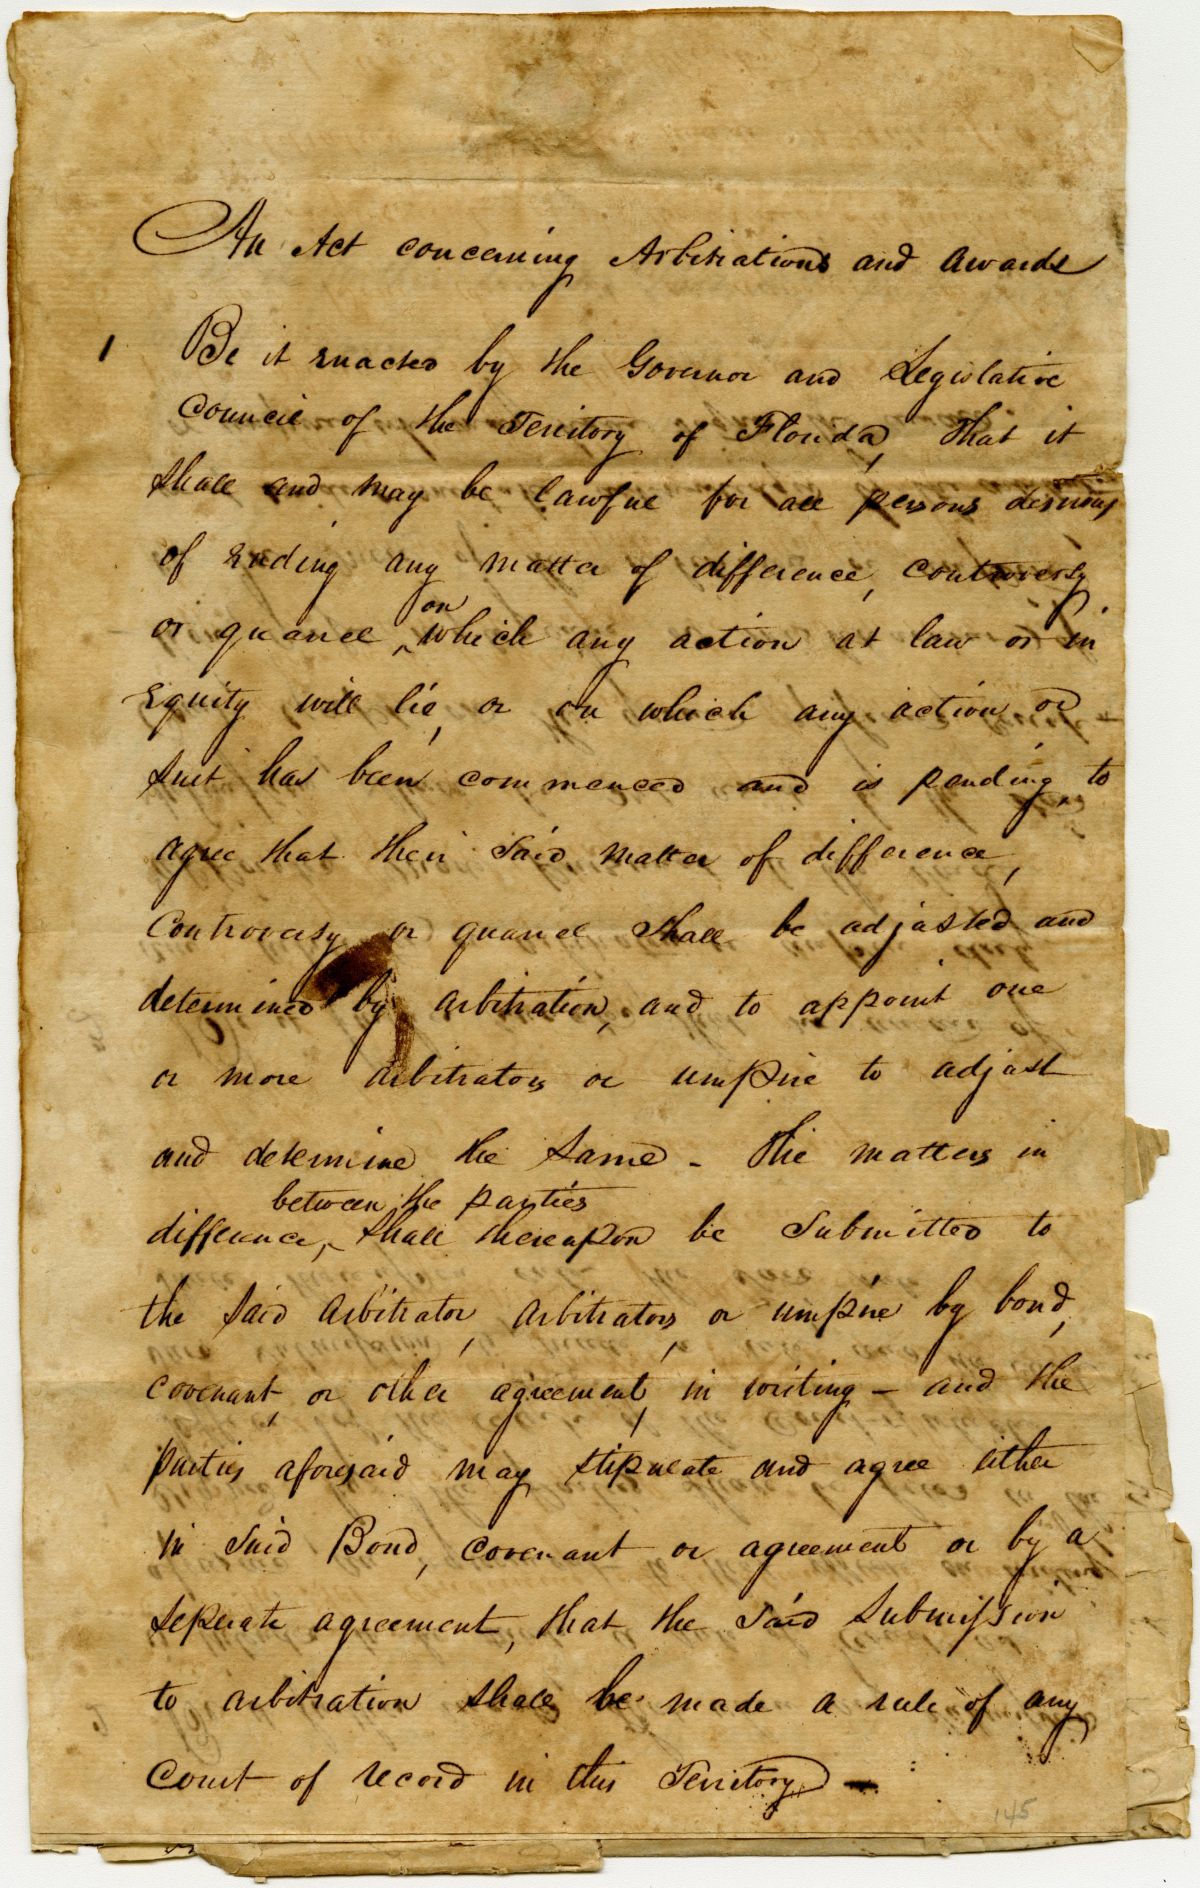 An Act concerning Arbitrations and Awards
1 Be it enacted by the Governor and Legislative
Council of the Territory of Florida, that it
shall and may be lawful for all persons desirous
of ending any matter of difference, controversy
on
or quarrel, which any action at law or in
Equity will lie, or on which any action or
suit has been commenced and is pending, to
agree that their said matter of difference,
controversy or quarrel shall be adjusted and
determined by arbitration, and to appoint one
or more arbitrators or umpire to adjust
and determine the same - The matters in
between the parties
difference, shall thereupon be submitted to
the said arbitrator, arbitrators, or umpire by bond,
covenant, or other agreement, in writing - and the
parties aforesaid may stipulate and agree either
in said Bond, covenant or agreement or by a
seperate agreement, that the said submission
to arbitration shall be made a rule of any
court of record in this Territory -
145